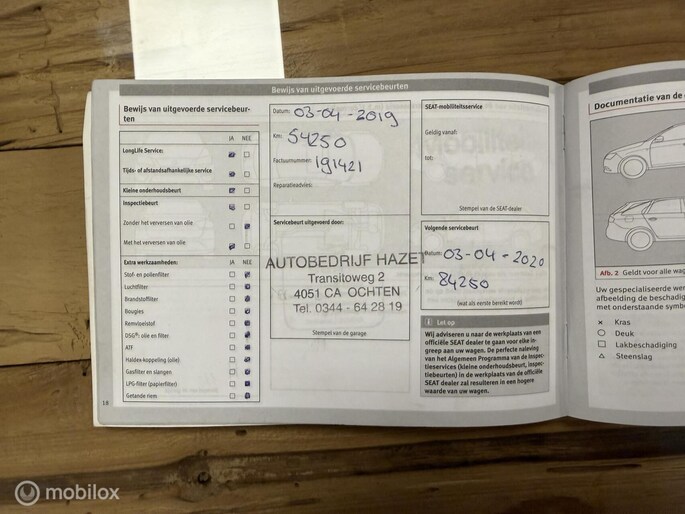 Bewijs van uitgevoerde servicebeurten
Bewijs van uitgevoerde servicebeur-
ten
JA NEE
LongLife Service:
Tijds- of afstandsafhankelijke service
Kleine onderhoudsbeurt
Inspectiebeurt
Zonder het verversen van olie
Met het verversen van olie
Extra werkzaamheden:
Stof- en pollenfilter
Luchtfilter
Brandstoffilter
Bougies
Remvloeistof
DSG®: olie en filter
ATF
Haldex-koppeling (olie)
Gasfilter en slangen
LPG-filter (papierfilter)
Getande riem
18
Datum: 03-04-2019
Km: 54250
Factuurnummer: 191421
Reparatieadvies:
Servicebeurt uitgevoerd door:
AUTOBEDRIJF HAZET
Transitoweg 2
4051 CA OCHTEN
Tel. 0344 - 64 28 19
Stempel van de garage
SEAT-mobiliteitsservice
Geldig vanaf:
tot:
Stempel van de SEAT-dealer
Volgende servicebeurt
Datum: 03-04-2020
Km: 84250
(wat als eerste bereikt wordt)
i Let op
Wij adviseren u naar de werkplaats van een
officiële SEAT dealer te gaan voor elke in-
greep aan uw wagen. De perfecte naleving
van het Algemeen Programma van de Inspec-
tieservices (kleine onderhoudsbeurt, inspec-
tiebeurten) in de werkplaats van de officiële
SEAT dealer zal resulteren in een hogere
waarde van uw wagen.
Documentatie van de
Afb. 2 Geldt voor alle wag
Uw gespecialiseerde wer
afbeelding de beschadig
met onderstaande symbo
× Kras
○ Deuk
□ Lakbeschadiging
△ Steenslag
mobilox